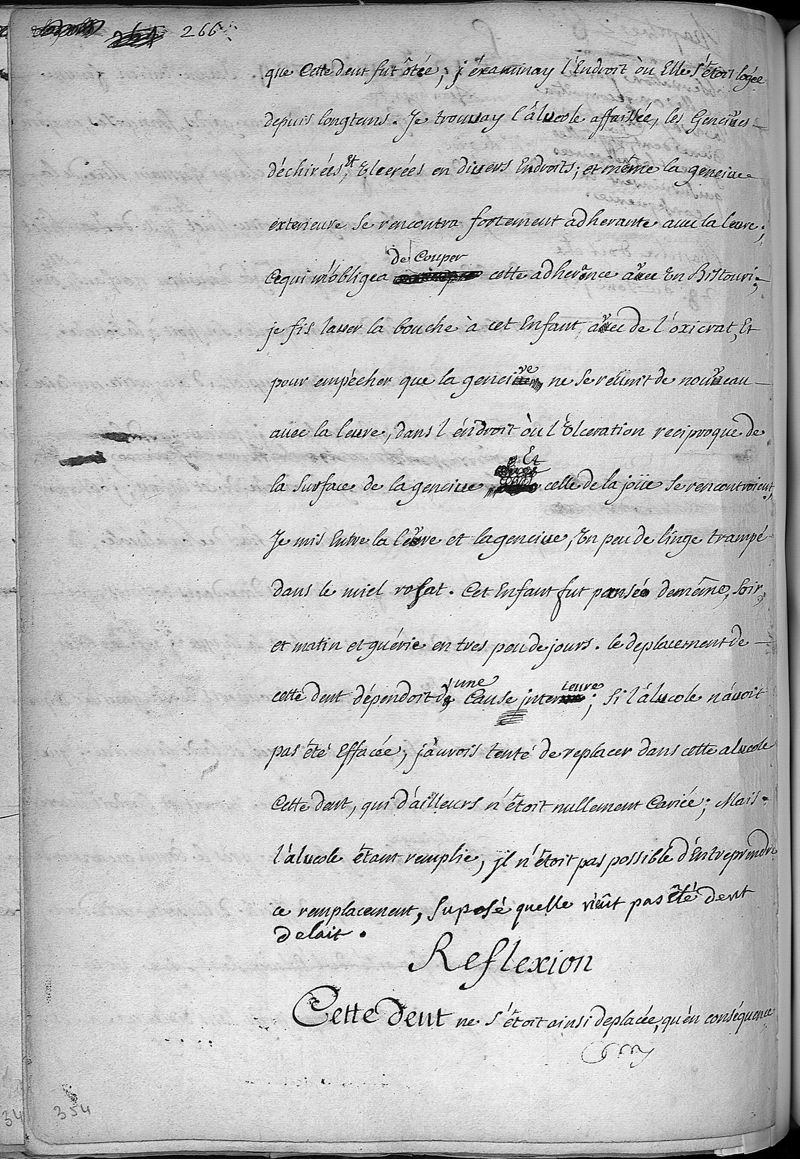 266
que Cette dent fut ôtée; j'éxaminay l'Endroit où Elle s'étoit logée
depuis longtans. Je trouvay l'alucole affaissée, les Gencives
déchirées, et Ulcerées en divers Endroits; et même la gencive
éxterieure se rencontra fortement adherante avec la levre;
de Couper
Cequi m'obligea cette adherence avec Un Bistouri;
je fis laver la bouche à cet Enfant, avec de l'oxicrat, Et
pour empécher que la gencive ne se reünit de nouveau
avec la levre, dans l'éndroit où l'Ulceration reciproque de
Et
la surface de la gencive celle de la joüe se rencontroient,
Je mis Entre la levre et la gencive, Un peu de linge trampé
dans le miel rosat. Cet Enfant fut pansée demême, soir,
et matin et guérie en tres peu de jours. le deplacement de
cette dent dépendoit d'une Cause interieure; Si l'alucole n'avoit
pas été Effacée, j'aurois tenté de replacer dans cette alucole
Cette dent, qui d'ailleurs n'étoit nullement Cariée; Mais
l'alucole étant remplie, jl n'étoit pas possible d'Entreprendre
ce remplacement, suposé quelle n'eût pas été dent
delait.
Reflexion
Cette dent ne s'étoit ainsi deplacée, qu'en conséquence
354
34